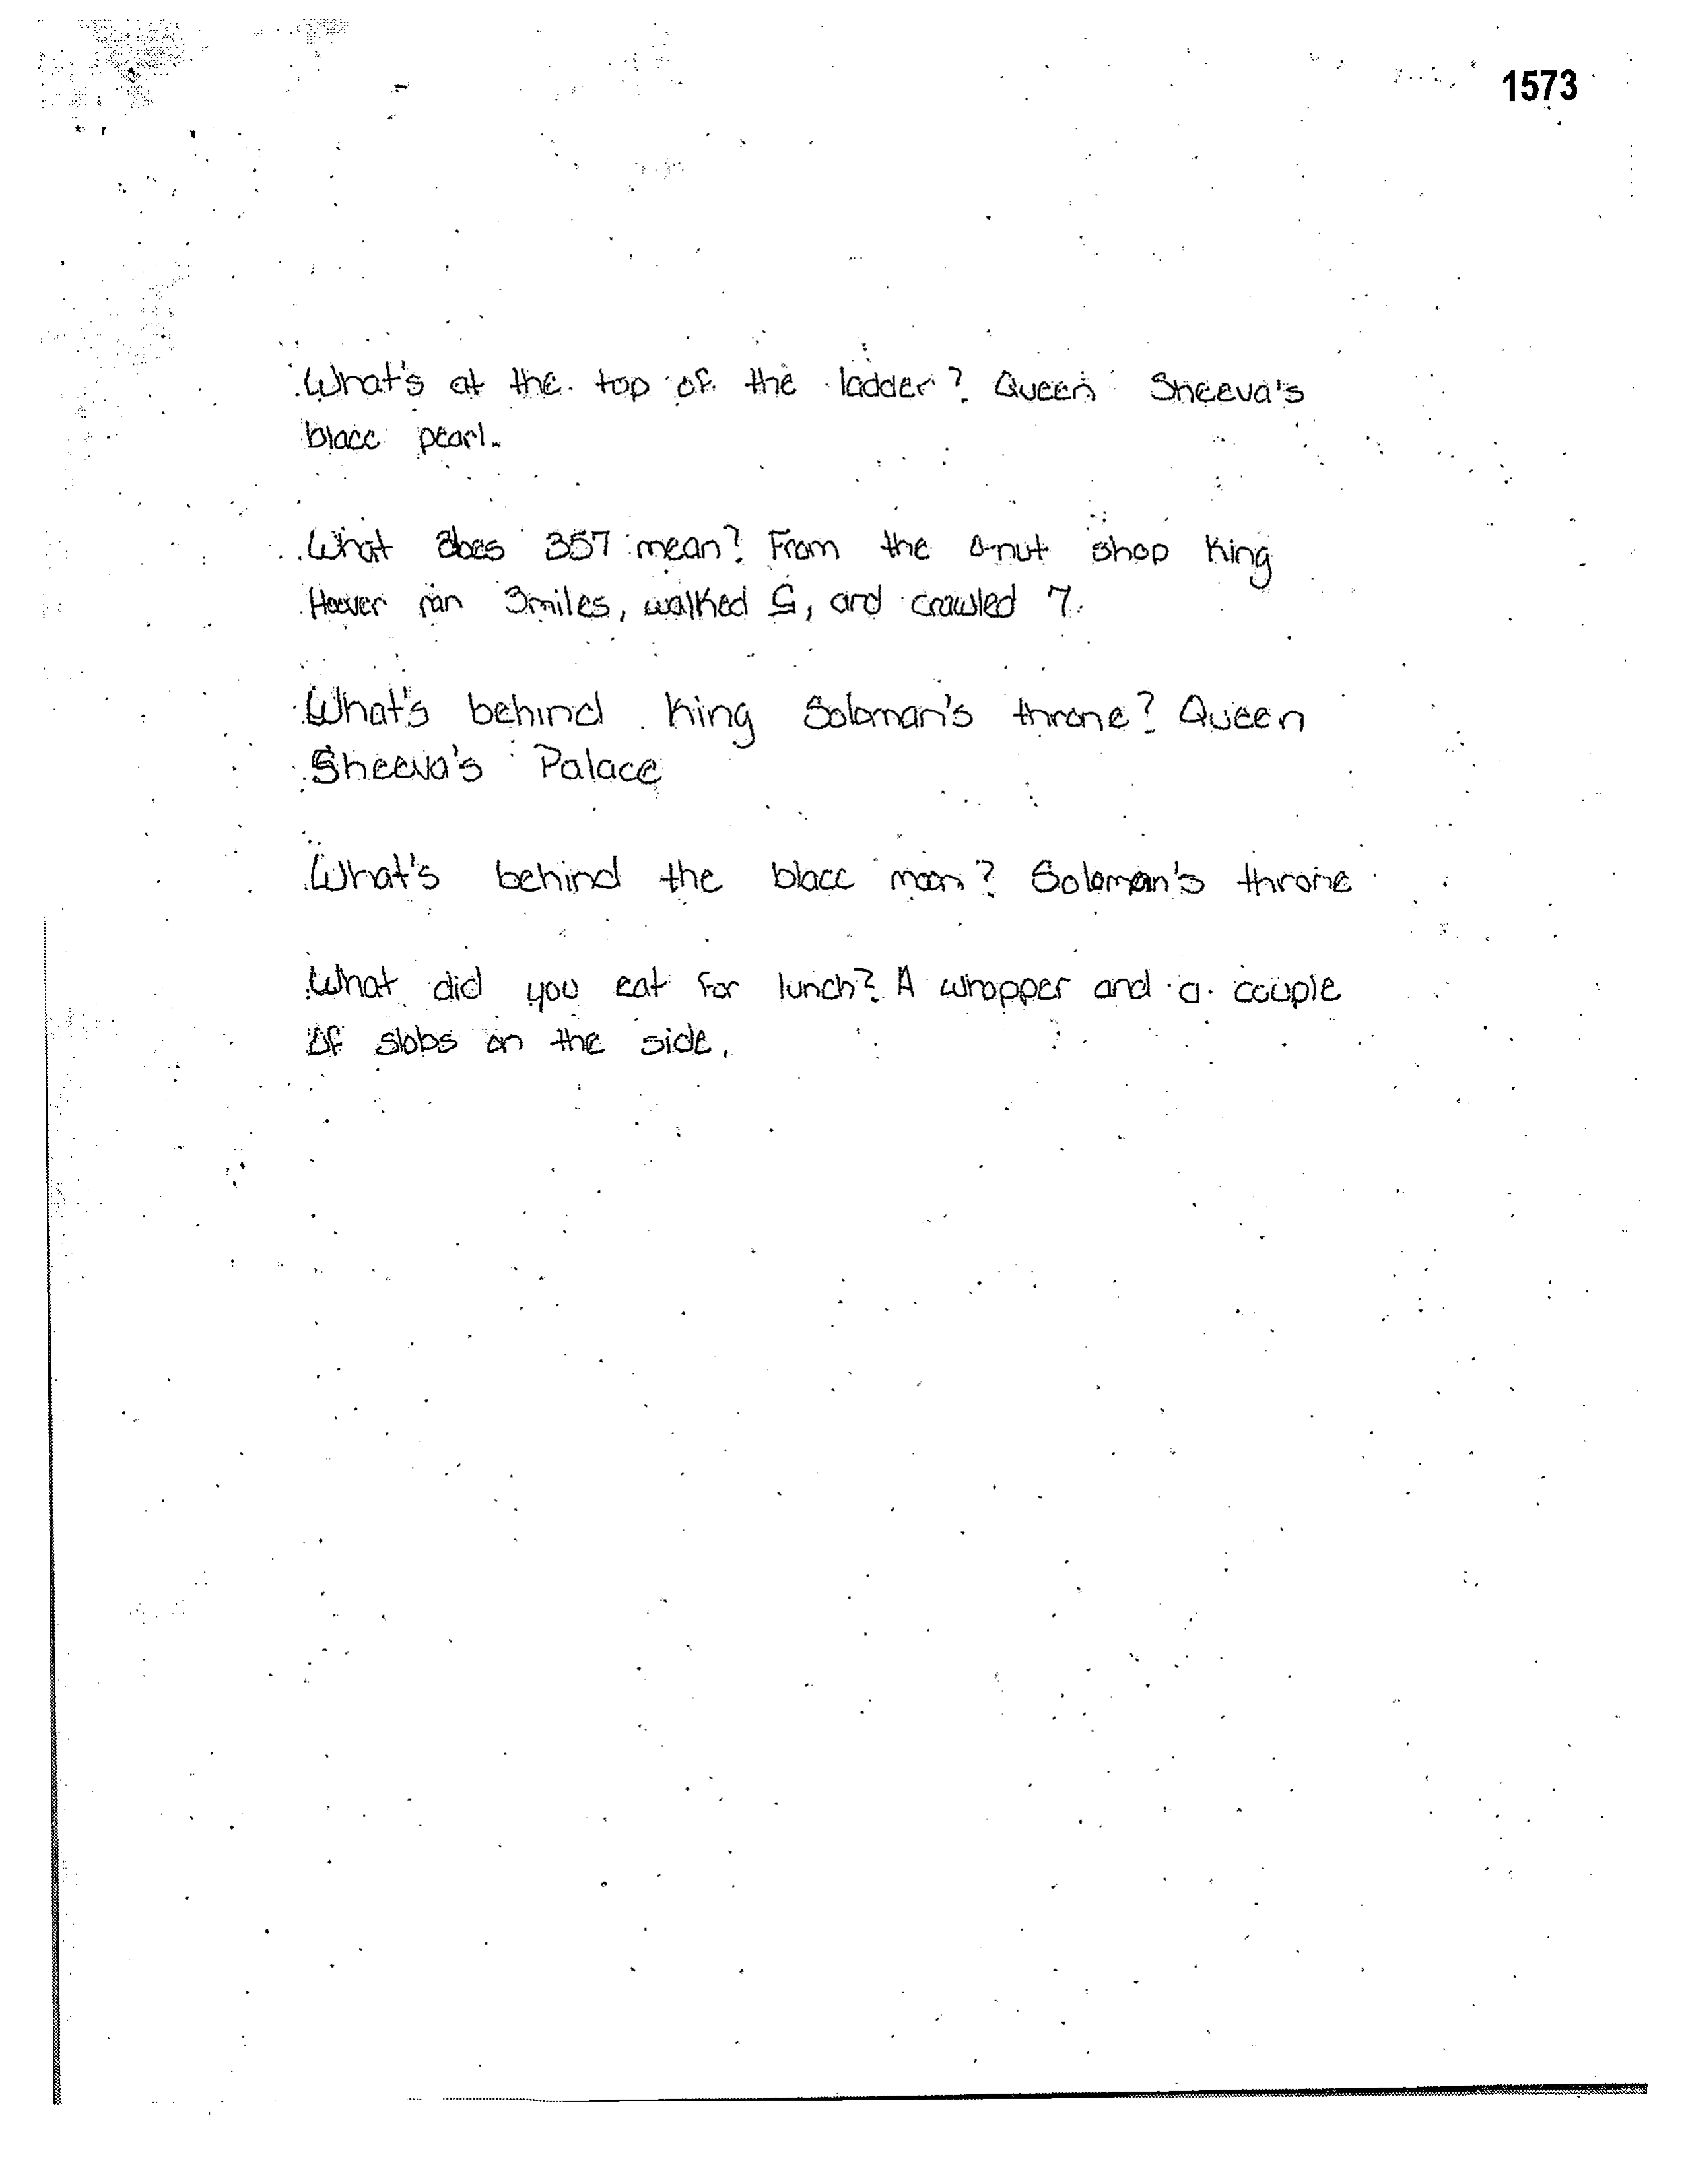 1573
What's at the top of the ladder? Queen Sheeva's
blacc pearl.
What does 357 mean? From the D-nut shop King
Hoover ran 3miles, walked 5, and crawled 7.
What's behind King Soloman's throne? Queen
Sheeva's Palace
What's behind the blacc moon? Soloman's throne
What did you eat for lunch? A whopper and a couple
of slobs on the side.